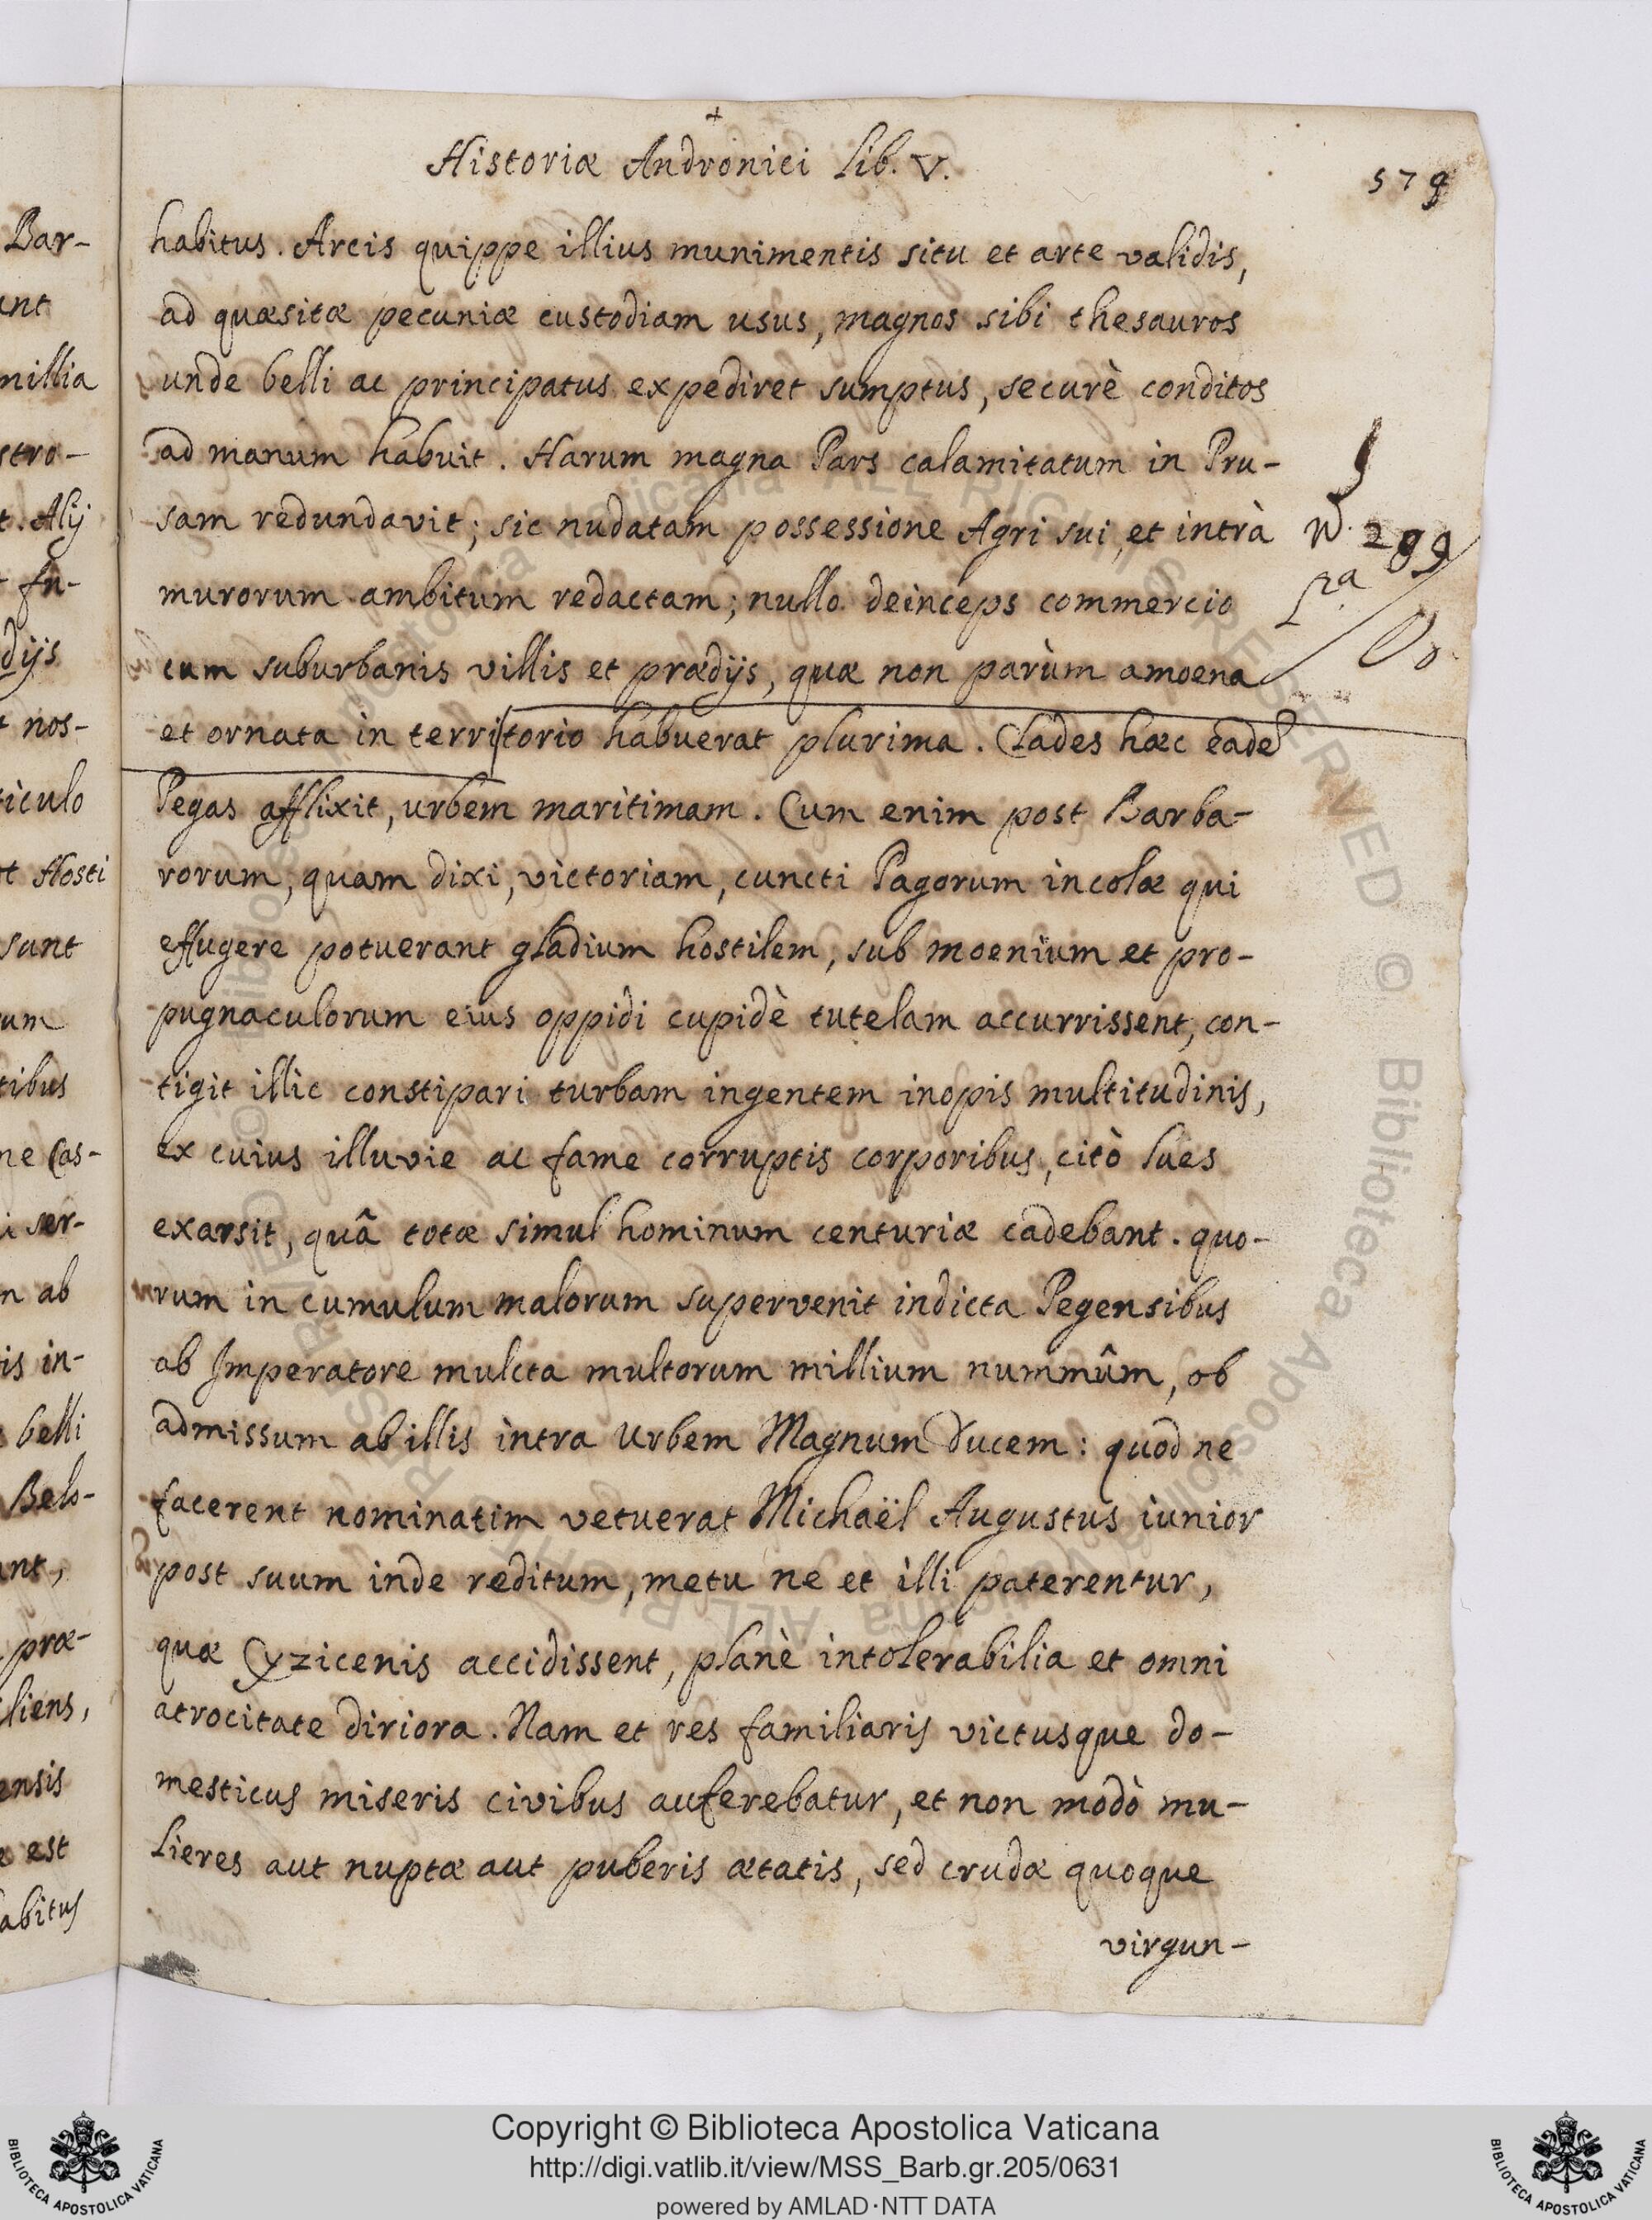 Historiæ Andronici Lib. V.
579
habitus. Arcis quippe illius munimentis situ et arte validis,
ad quæsitæ pecuniæ custodiam usus, magnos sibi thesauros
unde belli ac principatus expediret sumptus, securè conditos
ad manum habuit. Harum magna Pars calamitatum in Pru-
sam redundavit; sic nudatam possessione Agri sui, et intrà
murorum ambitum redactam; nullo deinceps commercio
cum suburbanis villis et prædijs, quæ non parùm amoena
et ornata in territorio habuerat plurima. Clades hæc eadē
Pegas afflixit, urbem maritimam. Cum enim post Barba-
rorum, quam dixi, victoriam, cuncti Pagorum incolæ qui
effugere potuerant gladium hostilem, sub moenium et pro-
pugnaculorum eius oppidi cupidè tutelam accurrissent, con-
tigit illic constipari turbam ingentem inopis multitudinis,
ex cuius illuvie ac fame corruptis corporibus, citò lues
exarsit, quâ totæ simul hominum centuriæ cadebant. quo-
rum in cumulum malorum supervenit indicta Pegensibus
ab Imperatore mulcta multorum millium nummûm, ob
admissum ab illis intra Urbem Magnum Ducem: quod ne
facerent nominatim vetuerat Michaël Augustus iunior
post suum inde reditum, metu ne et illi paterentur,
quæ Cyzicenis accidissent, planè intolerabilia et omni
atrocitate diriora. Nam et res familiaris victusque do-
mesticus miseris civibus auferebatur, et non modò mu-
lieres aut nuptæ aut puberis ætatis, sed crudæ quoque
virgun-
299
Bar-
millia
stro-
t. Alij
dijs
nos-
iculo
Hosti
sunt
tibus
ne Cas-
ser-
ab
is in-
belli
Belo-
præ-
liens,
ensis
est
abitus
Copyright © Biblioteca Apostolica Vaticana
http://digi.vatlib.it/view/MSS_Barb.gr.205/0631
powered by AMLAD·NTT DATA
BIBLIOTECA APOSTOLICA VATICANA
BIBLIOTECA APOSTOLICA VATICANA